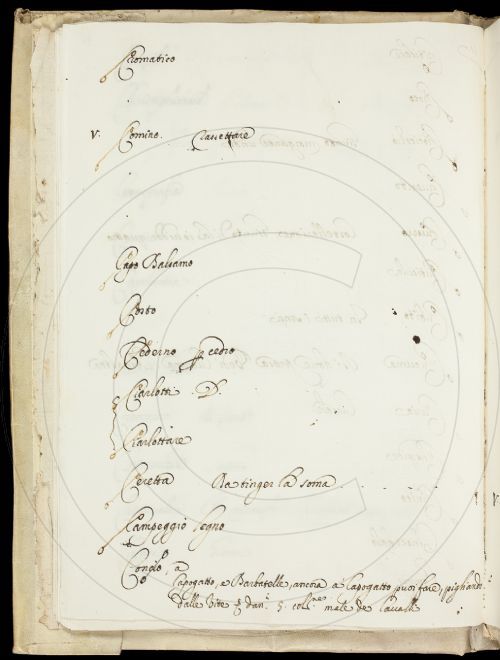 Cromatico
V. Comino. Cassettare
Capo Balsamo
Corto
Cederno cedro
Ciarlotti D.
Ciarlottare
Ceretta Da tinger la soma
Campeggio legno
Condo, a
Capogatto, e Barbatelle, ancora a Capogatto puoi fare, pigliando
dalle Vite dan. 5. coll. male de Cavalli